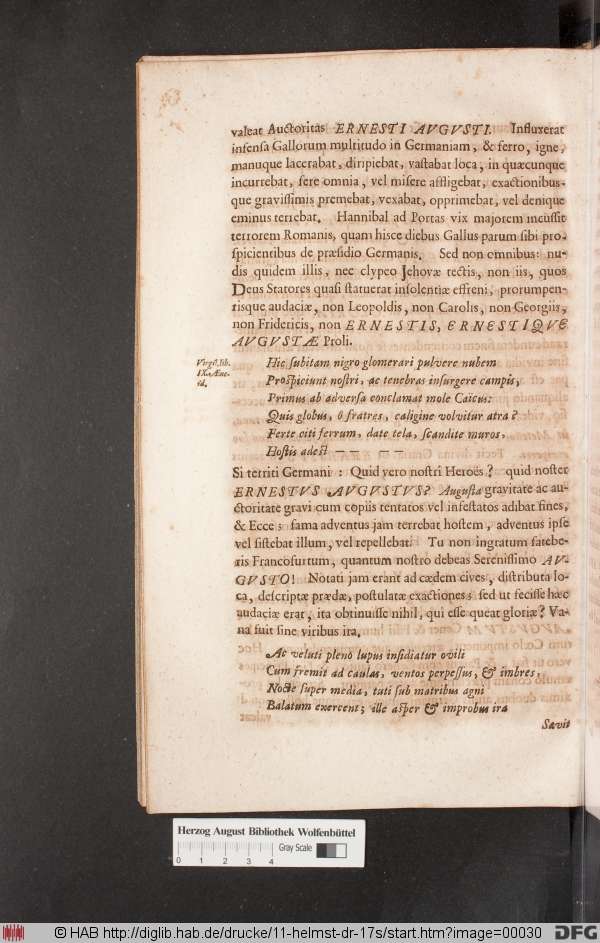 valeat Auctoritas ERNESTI AVGVSTI. Influxerat
infensa Gallorum multitudo in Germaniam, & ferro, igne,
manuque lacerabat, diripiebat, vastabat loca, in quæcunque
incurrebat, fere omnia, vel misere affligebat, exactionibus-
que gravissimis premebat, vexabat, opprimebat, vel denique
eminus terrebat. Hannibal ad Portas vix majorem incussit
terrorem Romanis, quam hisce diebus Gallus parum sibi pro-
spicientibus de præsidio Germanis. Sed non omnibus: nu-
dis quidem illis, nec clypeo Jehovæ tectis, non iis, quos
Deus Statores quasi statuerat insolentiæ effreni, prorumpen-
tisque audaciæ, non Leopoldis, non Carolis, non Georgiis,
non Fridericis, non ERNESTIS, ERNESTIQVE
AVGVSTÆ Proli.
Virgil. lib.
IX. Æne-
id.
Hic subitam nigro glomerari pulvere nubem
Prospiciunt nostri, ac tenebras insurgere campis,
Primus ab adversa conclamat mole Caicus:
Quis globus, ô fratres, caligine volvitur atra?
Ferte citi ferrum, date tela, scandite muros,
Hostis adest — — — —
Si territi Germani: Quid vero nostri Heroës? quid noster
ERNESTVS AVGVSTVS? Augusta gravitate ac au-
ctoritate gravi cum copiis tentatos vel infestatos adibat fines,
& Ecce: fama adventus jam terrebat hostem, adventus ipse
vel sistebat illum, vel repellebat. Tu non ingratum fatebe-
ris Francofurtum, quantum nostro debeas Serenissimo AV-
GVSTO! Notati jam erant ad cædem cives, distributa lo-
ca, descriptæ prædæ, postulatæ exactiones; sed ut fecisse hæc
audaciæ erat, ita obtinuisse nihil, qui esse queat gloriæ? Va-
na fuit sine viribus ira.
Ac veluti pleno lupus insidiatur ovili
Cum fremit ad caulas, ventos perpessus, & imbres,
Nocte super media, tuti sub matribus agni
Balatum exercent; ille asper & improbus ira
Sævit
Herzog August Bibliothek Wolfenbüttel
0 1 2 3 4 Gray Scale
© HAB http://diglib.hab.de/drucke/11-helmst-dr-17s/start.htm?image=00030 DFG